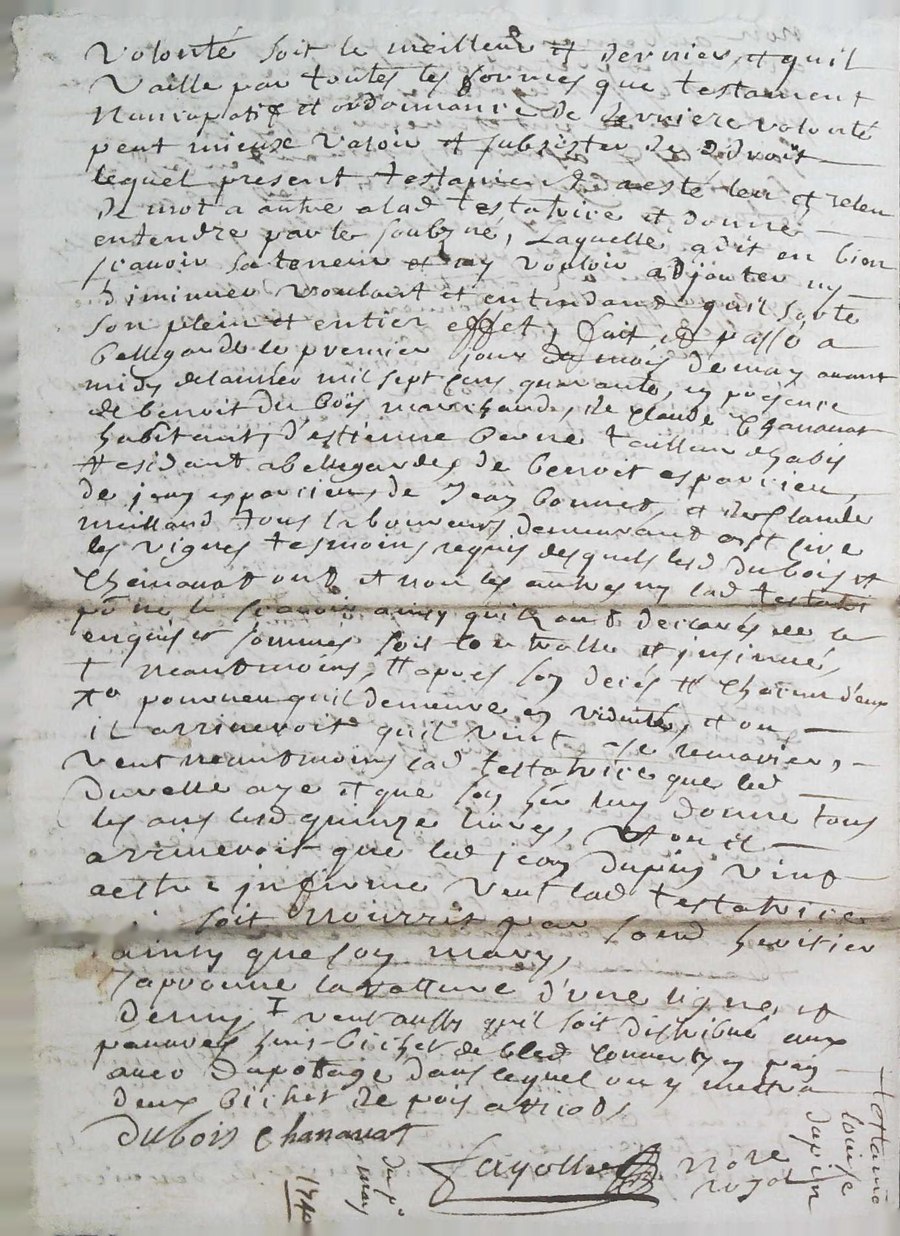 Volonté soit le meilleur et dernier, et quil
Vaille par toutes les formes que testament
Nuncupatif et ordonnance de derniere volonté
peut mieux valoir et subsister de droit
lequel present testament a esté leu et releu
de mot a autre a lad testatrice et donné
entendre par le soubsné, Laquelle a dit en bien
scavoir sa teneur et ny vouloir adjouter ny
diminuer voulant et entendant quil sorte
son plein et entier effet, fait et passé a
bellegarde le premier jour du mois de may avant
midy de lannée mil sept cens quarante, en presence
de benoit du bois marchand, de Claude Chanavat
habitant, d'estienne tailleur dhabis
residant a bellegarde, de benoet esparcieu,
de jean esparcieu, de Jean bonnet, et de Claude
meilland tous laboureurs demeurant
les vignes tesmoins requis desquels lesd Dubois et
Chanavat ont et non les autres ny lad testatri
pour ne le scavoir ainsy quils ont declarés de ce
enquis et sommés soit controllé et insinué,
+ neantmoins, et apres son deces et chacun d'eux
pourveu quil demeure en viduité, et ou
il arriveroit quil vint a se remarier,
veut neantmoins lad testatrice que led
aye et que son luy donne tous
les ans lesd quinze livres, et ou il
arriveroit que led jean Dupuy vint
a estre infirme veut lad testatrice
soit nourris par sond heritier
ainsy que son mary,
Japrouve la rature d'une ligne et
demy I veut aussy quil soit distribué aux
pauvres bichet de bled converty en pain
avec du potage dans lequel on y mettra
deux bichet de pois
Dubois Chanavat
Fayolle nore royal
may
1740
testamt
louise